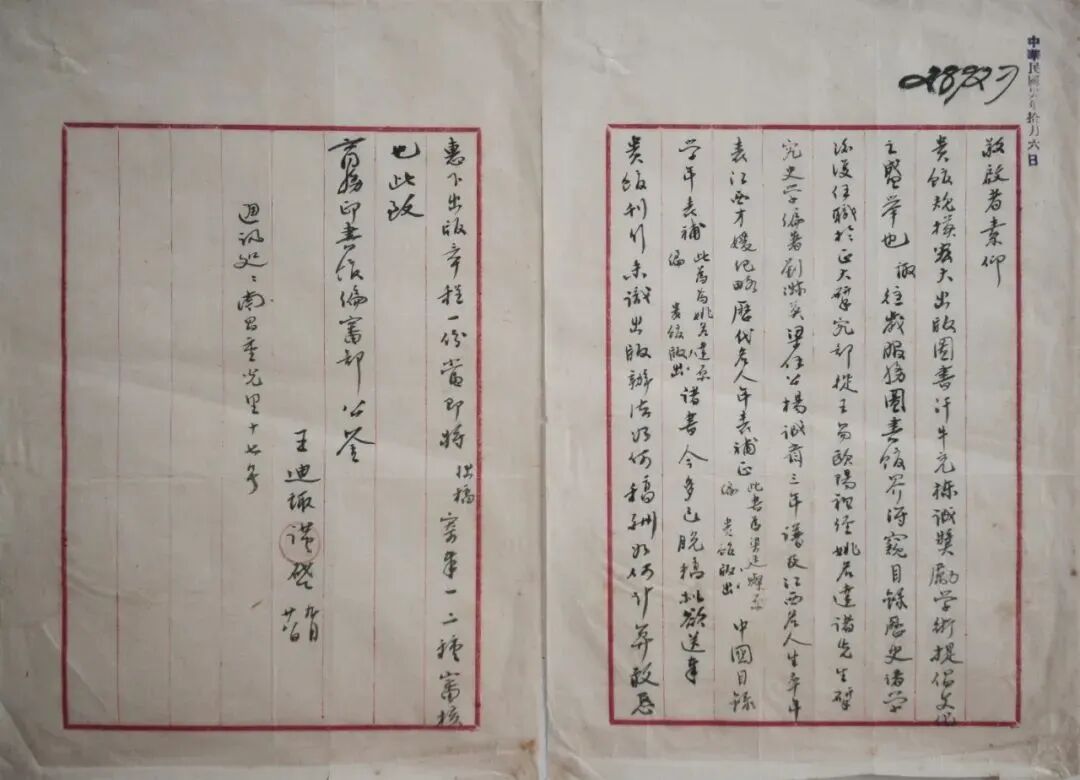 中華民國 年拾月六日
28927
敬啟者素仰
貴館規模宏大出版圖書汗牛充棟誠獎勵學術提倡文化
之盛举也 往歲服務圖書館界得窺目錄歷史诸学
嗣後任職於正大研究部從王易歐陽祖經姚名達诸先生研
究史学編著劉 梁任公楊誠齋三年譜及江西名人生卒年
表江西才媛紀略歷代名人年表補正 此書為梁廷燦原編 貴館出版 中國目錄
学年表補 此為為姚名達原編 貴館出版 诸書今多已脱稿擬欲送奉
貴館刊行未識出版辦法如何稿酬如何计算敢懇
惠下出版章程一份當即將 拙稿 寄奉一二種審核
也此致
商務印書館編審部 公鉴
王迪諏 谨啓 九月 廿 日
通訊处：南昌 光里十七号